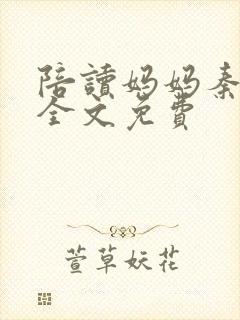 陪讀妈妈秦
全文免費
萱草妖花